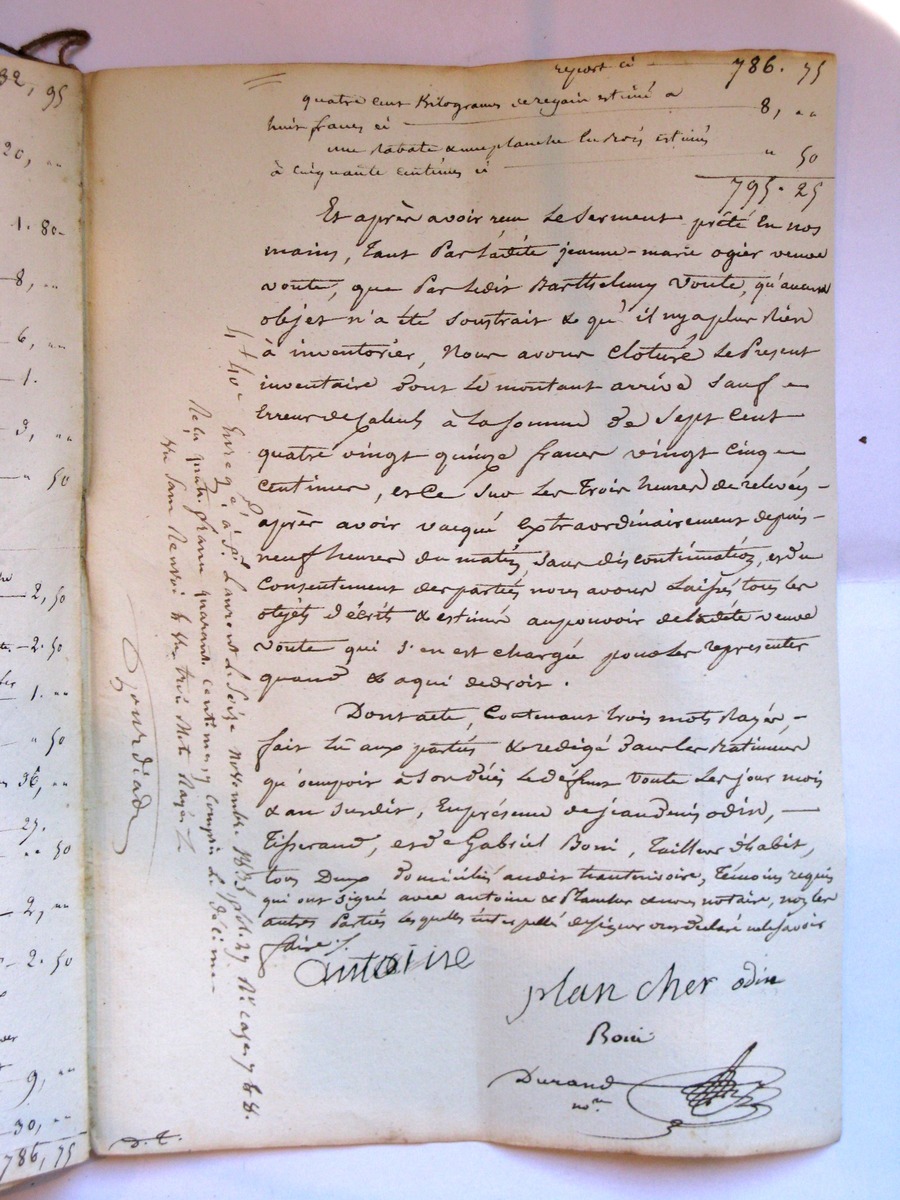 report ci 786. 75
quatre cent Kilograms de regain estimé a
huit francs ci 8, ""
une rabate & une planche en bois estimés
à cinquante centimes ci " 50
795. 25
Et après avoir reçu le serment prêté en nos
mains, tant par ladite jeanne-marie ogier veuve
voute, que par ledit Barthelemy Voute, qu'aucun
objet n'a été soustrait & qu'il ny a plus rien
à inventorier, nous avons cloturé le present
inventaire dont le montant arrive sauf
erreur de calculs à la somme de sept cent
quatre vingt quinze francs vingt cinq
centimes, et ce sur les trois heures de relevée
après avoir vacqué extraordinairement depuis
neuf heures du matin, sans discontinuation, et du
consentement des parties nous avons laissés tous les
objets décrits & estimés au pouvoir de ladite veuve
voute qui s'en est chargée pour les representer
quand & a qui de droit.
Dont acte, contenant trois mots rayés,
fait lu aux parties & redigé dans les batimens
qu'occupoit à son décès le défunt voute les jour mois
& an susdit, en présence de jean denis odin,
Tisserand, et de Gabriel Boni, tailleur d'habit,
tous deux domiciliés audit , témoins requis
qui ont signé avec antoine & Plancher & nous notaire, non les
autres parties lesquelles interpellés de signer ont declaré ne le savoir
faire ./.
antoine
plan cher odin
Boni
Durand
nore
4f 40c Enregé. à St. Laurent le seize novembre 1835
Reçu quatre francs quarante centimes y compris le décime
trois mots rayés
Gourdiade
D. t.
32, 95
20, ""
1. 80
8, ""
6, ""
1.
3, ""
" 50
2, 50
2. 50
1. ""
" 50
36, ""
27.
" 50
2, ""
2. 50
9, ""
30, ""
786, 75